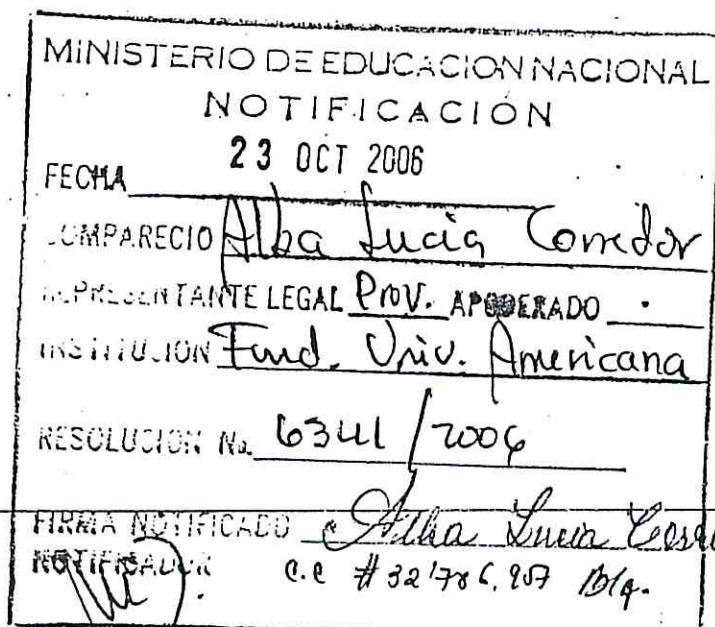 MINISTERIO DE EDUCACION NACIONAL
NOTIFICACIÓN
23 OCT 2006
FECHA
COMPARECIO Alba Lucia Corredor
REPRESENTANTE LEGAL Prov. APODERADO
INSTITUCION Fund. Univ. Americana
RESOLUCION No. 6341/2006
FIRMA NOTIFICADO Alba Lucia
NOTIFICADOR C.C # 32'786,907 B/q.